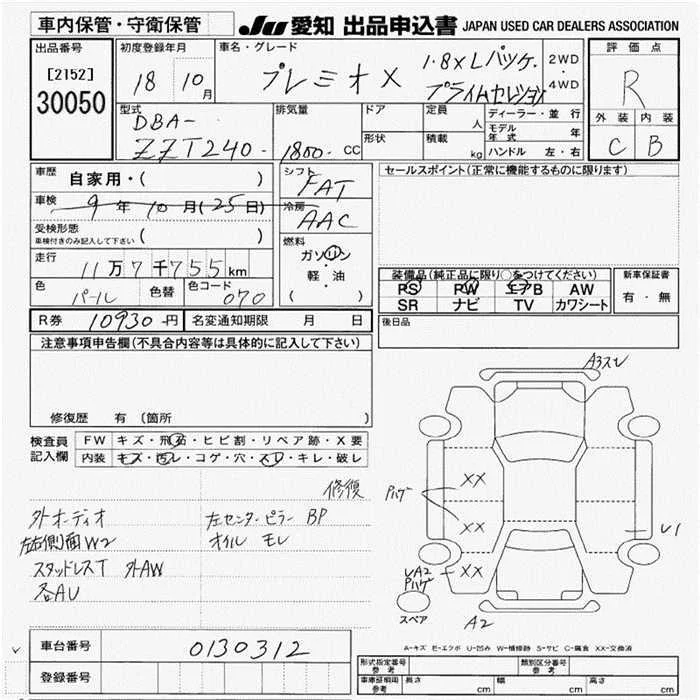 車内保管・守衛保管
JU 愛知 出品申込書 JAPAN USED CAR DEALERS ASSOCIATION
出品番号
[2152]
30050
初度登録年月
18 10月
車名・グレード
プレミオX
1.8×Lパッケ.
プライムセレクション
2WD
・
4WD
評価点
R
外装 内装
C B
型式
DBA-
ZZT240-
排気量
1800.CC
ドア
形状
定員
人
積載
kg
ディーラー・並行
モデル年式 年
ハンドル 左・右
車歴 自家用・( )
車検 9年10月(25日)
受検形態
車検付きのみ記入して下さい ( )
走行 11万7千755km
色 パール 色替 色コード 070
シフト
FAT
冷房
AAC
燃料
ガソリン
・
軽・油
( )
セールスポイント(正常に機能するものに限ります)
装備品(純正品に限り○をつけてください)
PS PW エアB AW
SR ナビ TV カワシート
新車保証書
有・無
後日品
R券 10930円 名変通知期限 月 日
注意事項申告欄(不具合内容等は具体的に記入して下さい)
修復歴 有 (箇所 )
検査員記入欄
FW キズ・飛石・ヒビ割・リペア跡・X要
内装 キズ・汚レ・コゲ・穴・スレ・キレ・破レ
修復
外オーディオ 左センターピラー BP
左右側面W2 オイル モレ
スタッドレスT 外AW
各AU
A3スリ
XX
XX
XX
Pハゲ
UA2
Pハゲ
U1
A2
スペア
A-キズ E-エクボ U-凹み W-補修跡 S-サビ C-腐食 XX-交換済
車台番号 0130312
登録番号
形式指定番号 参考
類別区分番号 参考
車庫証明用 参考 長さ cm 幅 cm 高さ cm